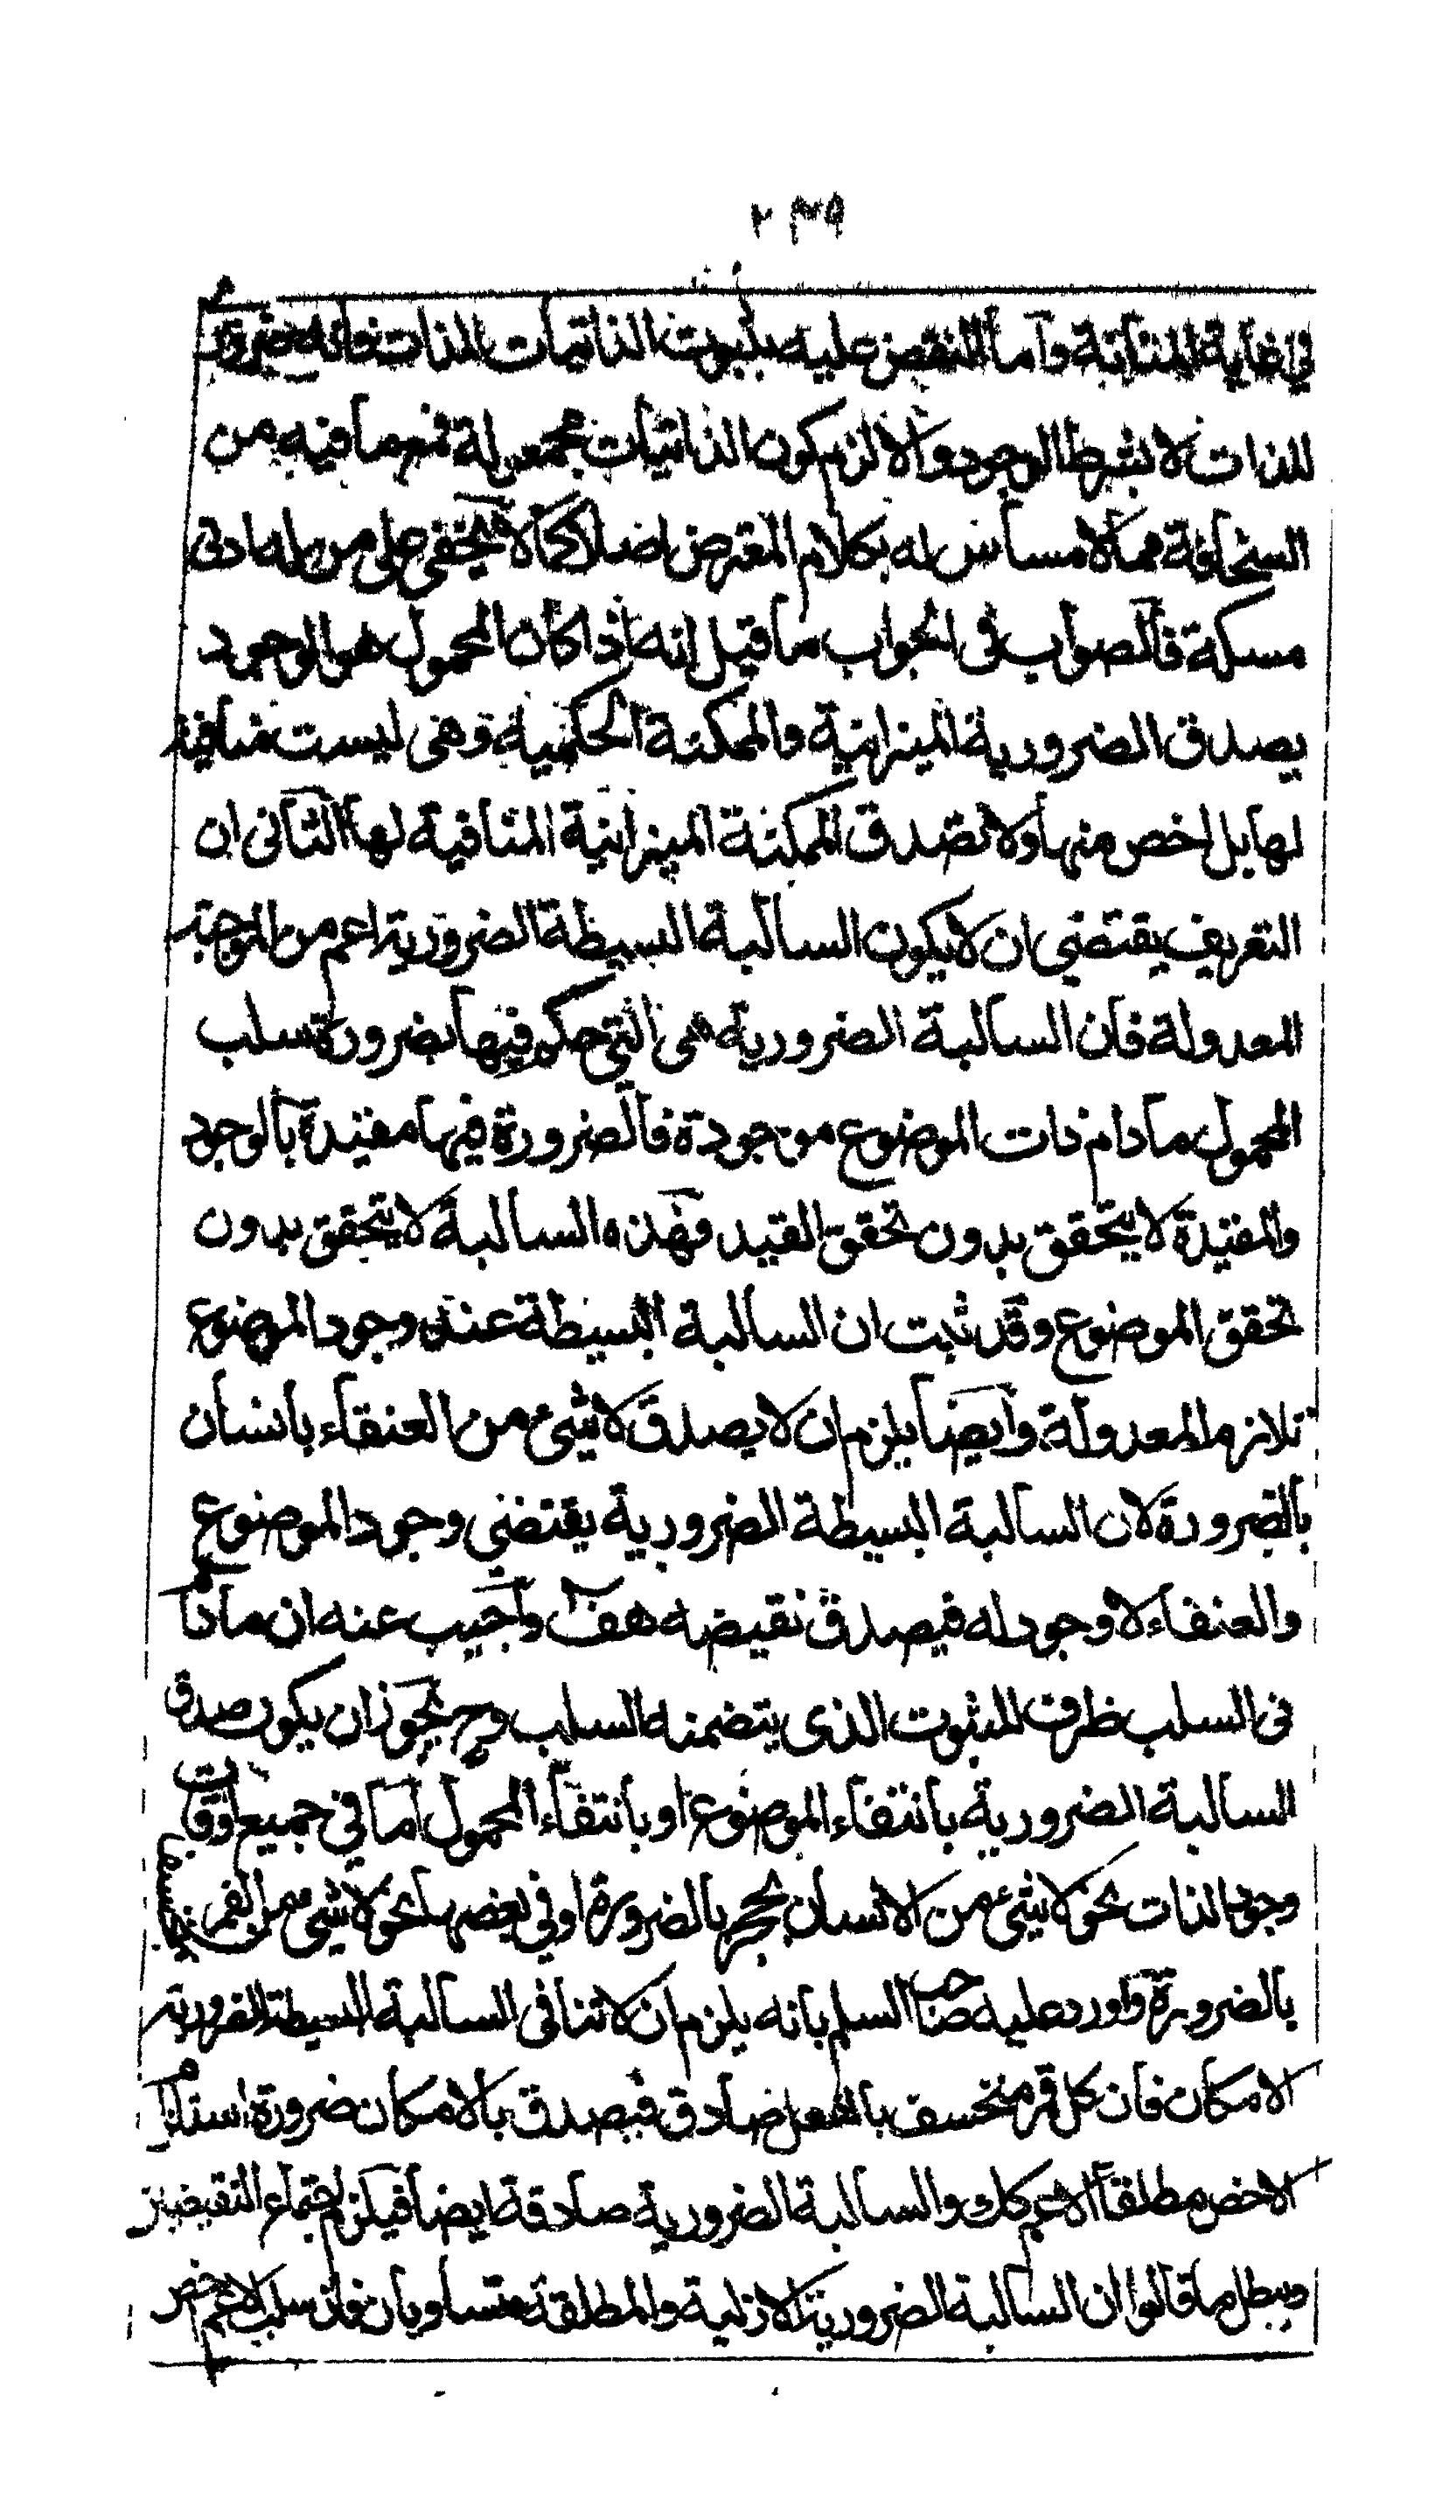 ٢٣٩
في غاية المتانة وأما النقض عليه بثبوت الذاتيات للذات فانه ضرورى
للذات لا بشرط الوجود والا لزم كون الذاتيات مجعولة فمع ما فيه من
السخافة مما لا مساس له بكلام المعترض اصلا كما لا يخفى على من له ادنى
مسكة فالصواب فى الجواب ما قيل انه اذا كان المحمول هو الوجود
يصدق الضرورية الميزانية والممكنة الحكمية وهى ليست منافية
لها بل اخص منها ولا تصدق الممكنة الميزانية المنافية لها الثانى ان
التعريف يقتضي ان لا يكون السالبة البسيطة الضرورية اعم من الموجبة
المعدولة فان السالبة الضرورية هى التي حكم فيها بضرورة سلب
المحمول مادام ذات الموضوع موجودة فالضرورة فيها مقيدة بالوجود
والمقيدة لا يتحقق بدون تحقق القيد فهذه السالبة لا يتحقق بدون
تحقق الموضوع وقد ثبت ان السالبة البسيطة عند وجود الموضوع
تلازم المعدولة وايضا يلزم ان لا يصدق لا شئ من العنقاء بانسان
بالضرورة لان السالبة البسيطة الضرورية يقتضي وجود الموضوع
والعنقاء لا وجود له فيصدق نقيضه هف واجيب عنه ان مادام
فى السلب ظرف للثبوت الذى يتضمنه السلب وح يجوز ان يكون صدق
السالبة الضرورية بانتفاء الموضوع او بانتفاء المحمول اما في جميع اوقات
وجود الذات نحو لا شئ من الانسان بحجر بالضرورة او في بعضها نحو لا شئ من القمر بمنخسف
بالضرورة واورد عليه صاحب السلم بانه يلزم ان لا تنافى السالبة البسيطة الضرورية
الامكان فان كل قمر منخسف بالفعل صادق فيصدق بالامكان ضرورة استلزام
الاخص مطلقا الاعم كك والسالبة الضرورية صادقة ايضا فيلزم اجتماع النقيضين
ويبطل ما قالوا ان السالبة الضرورية الازلية والمطلقة متساويان فان سلب الاعم اخص